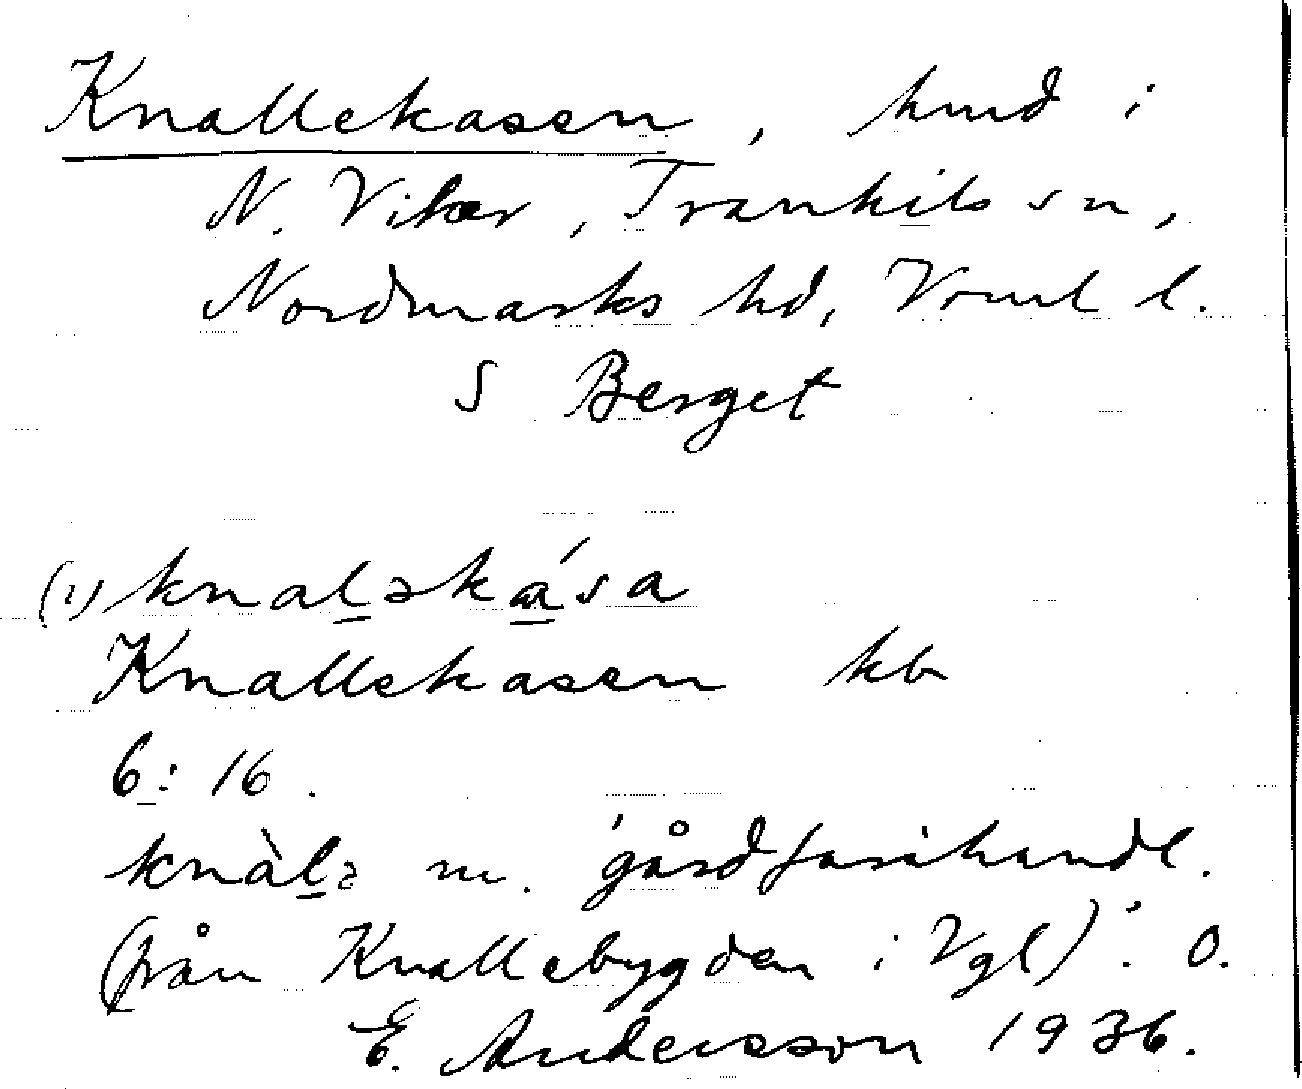 Knallekasen, hmd i
N. Viker, Trankils sn,
Nordmarks hd, Vrml l.
S Berget
(i) knaləkása
Knallekasen kb
6:16.
knàlə m. 'gårdfarihandl.
(från Knallebygden i Vgl)'. O.
E. Andersson 1936.